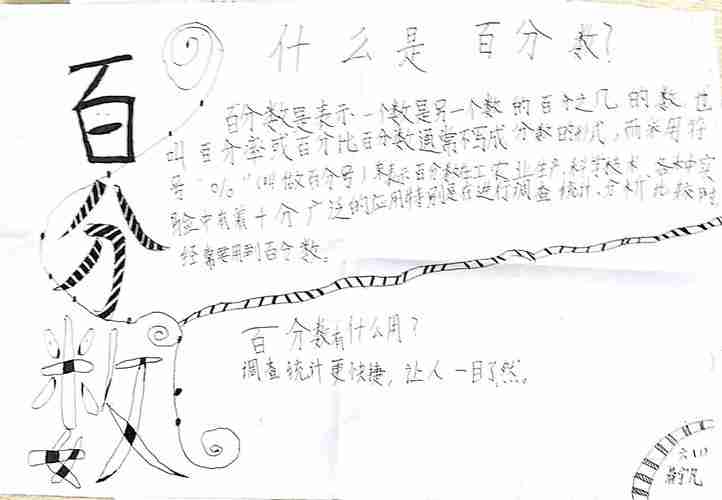 百分数
什么是百分数?
百分数是表示一个数是另一个数的百分之几的数也
叫百分率或百分比百分数通常不写成分数的形式,而采用符
号"%"(叫做百分号)来表示百分数在工农业生产,科学技术、各种实
验中有着十分广泛的应用特别是在进行调查统计、分析比较时
经常要用到百分数。
百分数有什么用?
调查统计更快捷,让人一目了然。